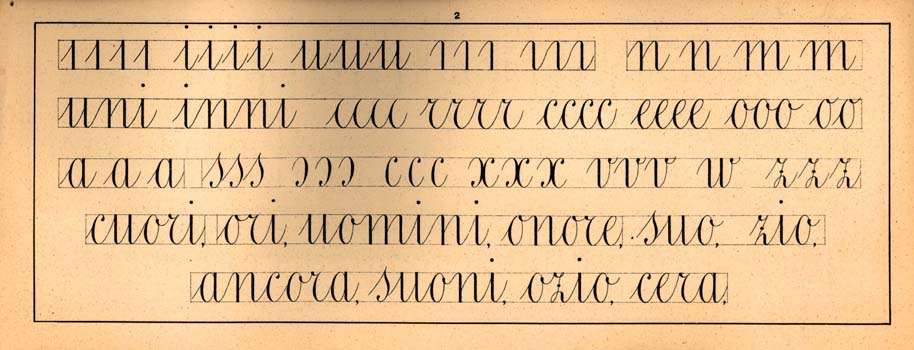 2
ıııı iiii uuu ııı ııı n n m m
uni inni cccc rrrr cccc eeee ooo oo
a a a sss ɔɔɔ ccc xxx vvv w zzz
cuori, ori, uomini, onore, suo, zio,
ancora, suoni, ozio, cera,